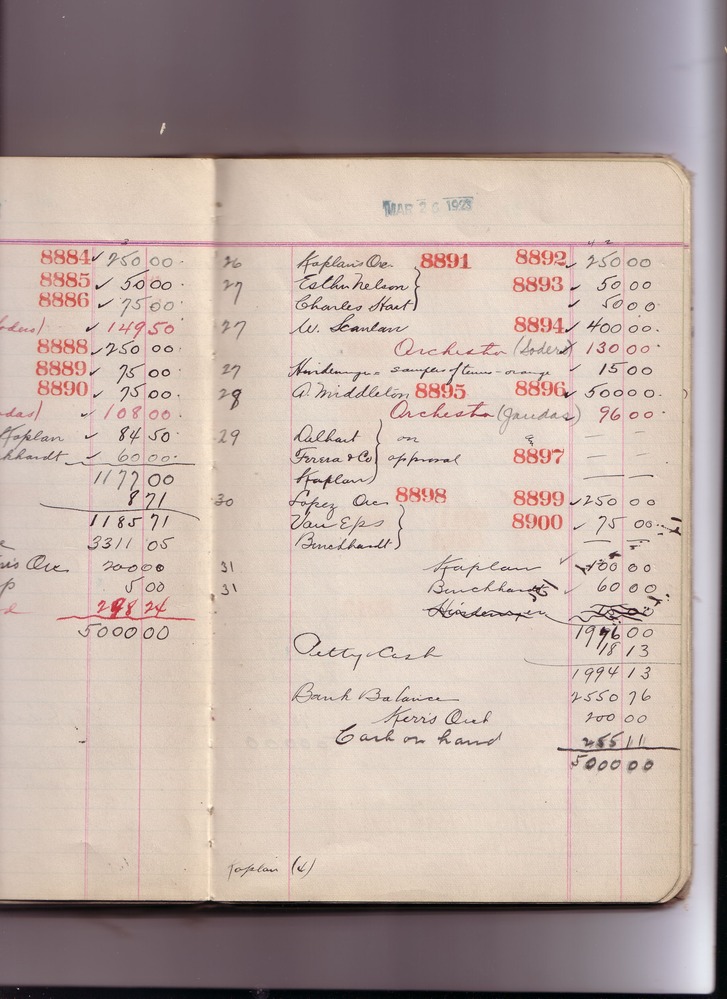 3
8884 ✓ 250 00
8885 ✓ 50 00
8886 ✓ 75 00
✓ 149 50
8888 ✓ 250 00
8889 ✓ 75 00
8890 ✓ 75 00
✓ 108 00
Kaplan ✓ 84 50
✓ 60 00
1177 00
8 71
1185 71
3311 05
200 00
5 00
298 24
5000 00
MAR 26 1923
4 2
26 Kaplan's Orc. 8891 8892 ✓ 250 00
27 Esther Nelson 8893 ✓ 50 00
Charles Hart ✓ 50 00
27 W. Scanlan 8894 ✓ 400 00
Orchestra (Soders) 130 00
27 samples of tunes - orange ✓ 15 00
28 A. Middleton 8895 8896 ✓ 500 00
Orchestra (Jaudas) 96 00
29 Dalhart on — —
Ferera & Co approval 8897 — —
Kaplan — —
30 Lopez Orc 8898 8899 ✓ 250 00
Van Eps 8900 ✓ 75 00
Burckhardt — —
31 Kaplan ✓ 100 00
31 Burckhardt ✓ 60 00
1976 00
Petty Cash 18 13
1994 13
Bank Balance 2550 76
Kerr's Orch 200 00
Cash on hand 255 11
5000 00
Kaplan (4)